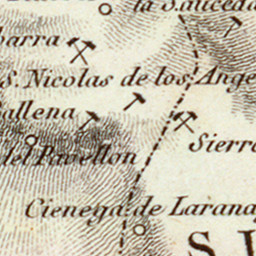 la Sauceda
barra
S. Nicolas de los Ange
allena
Sierra
del Pavellon
Cienega de Larana
S I